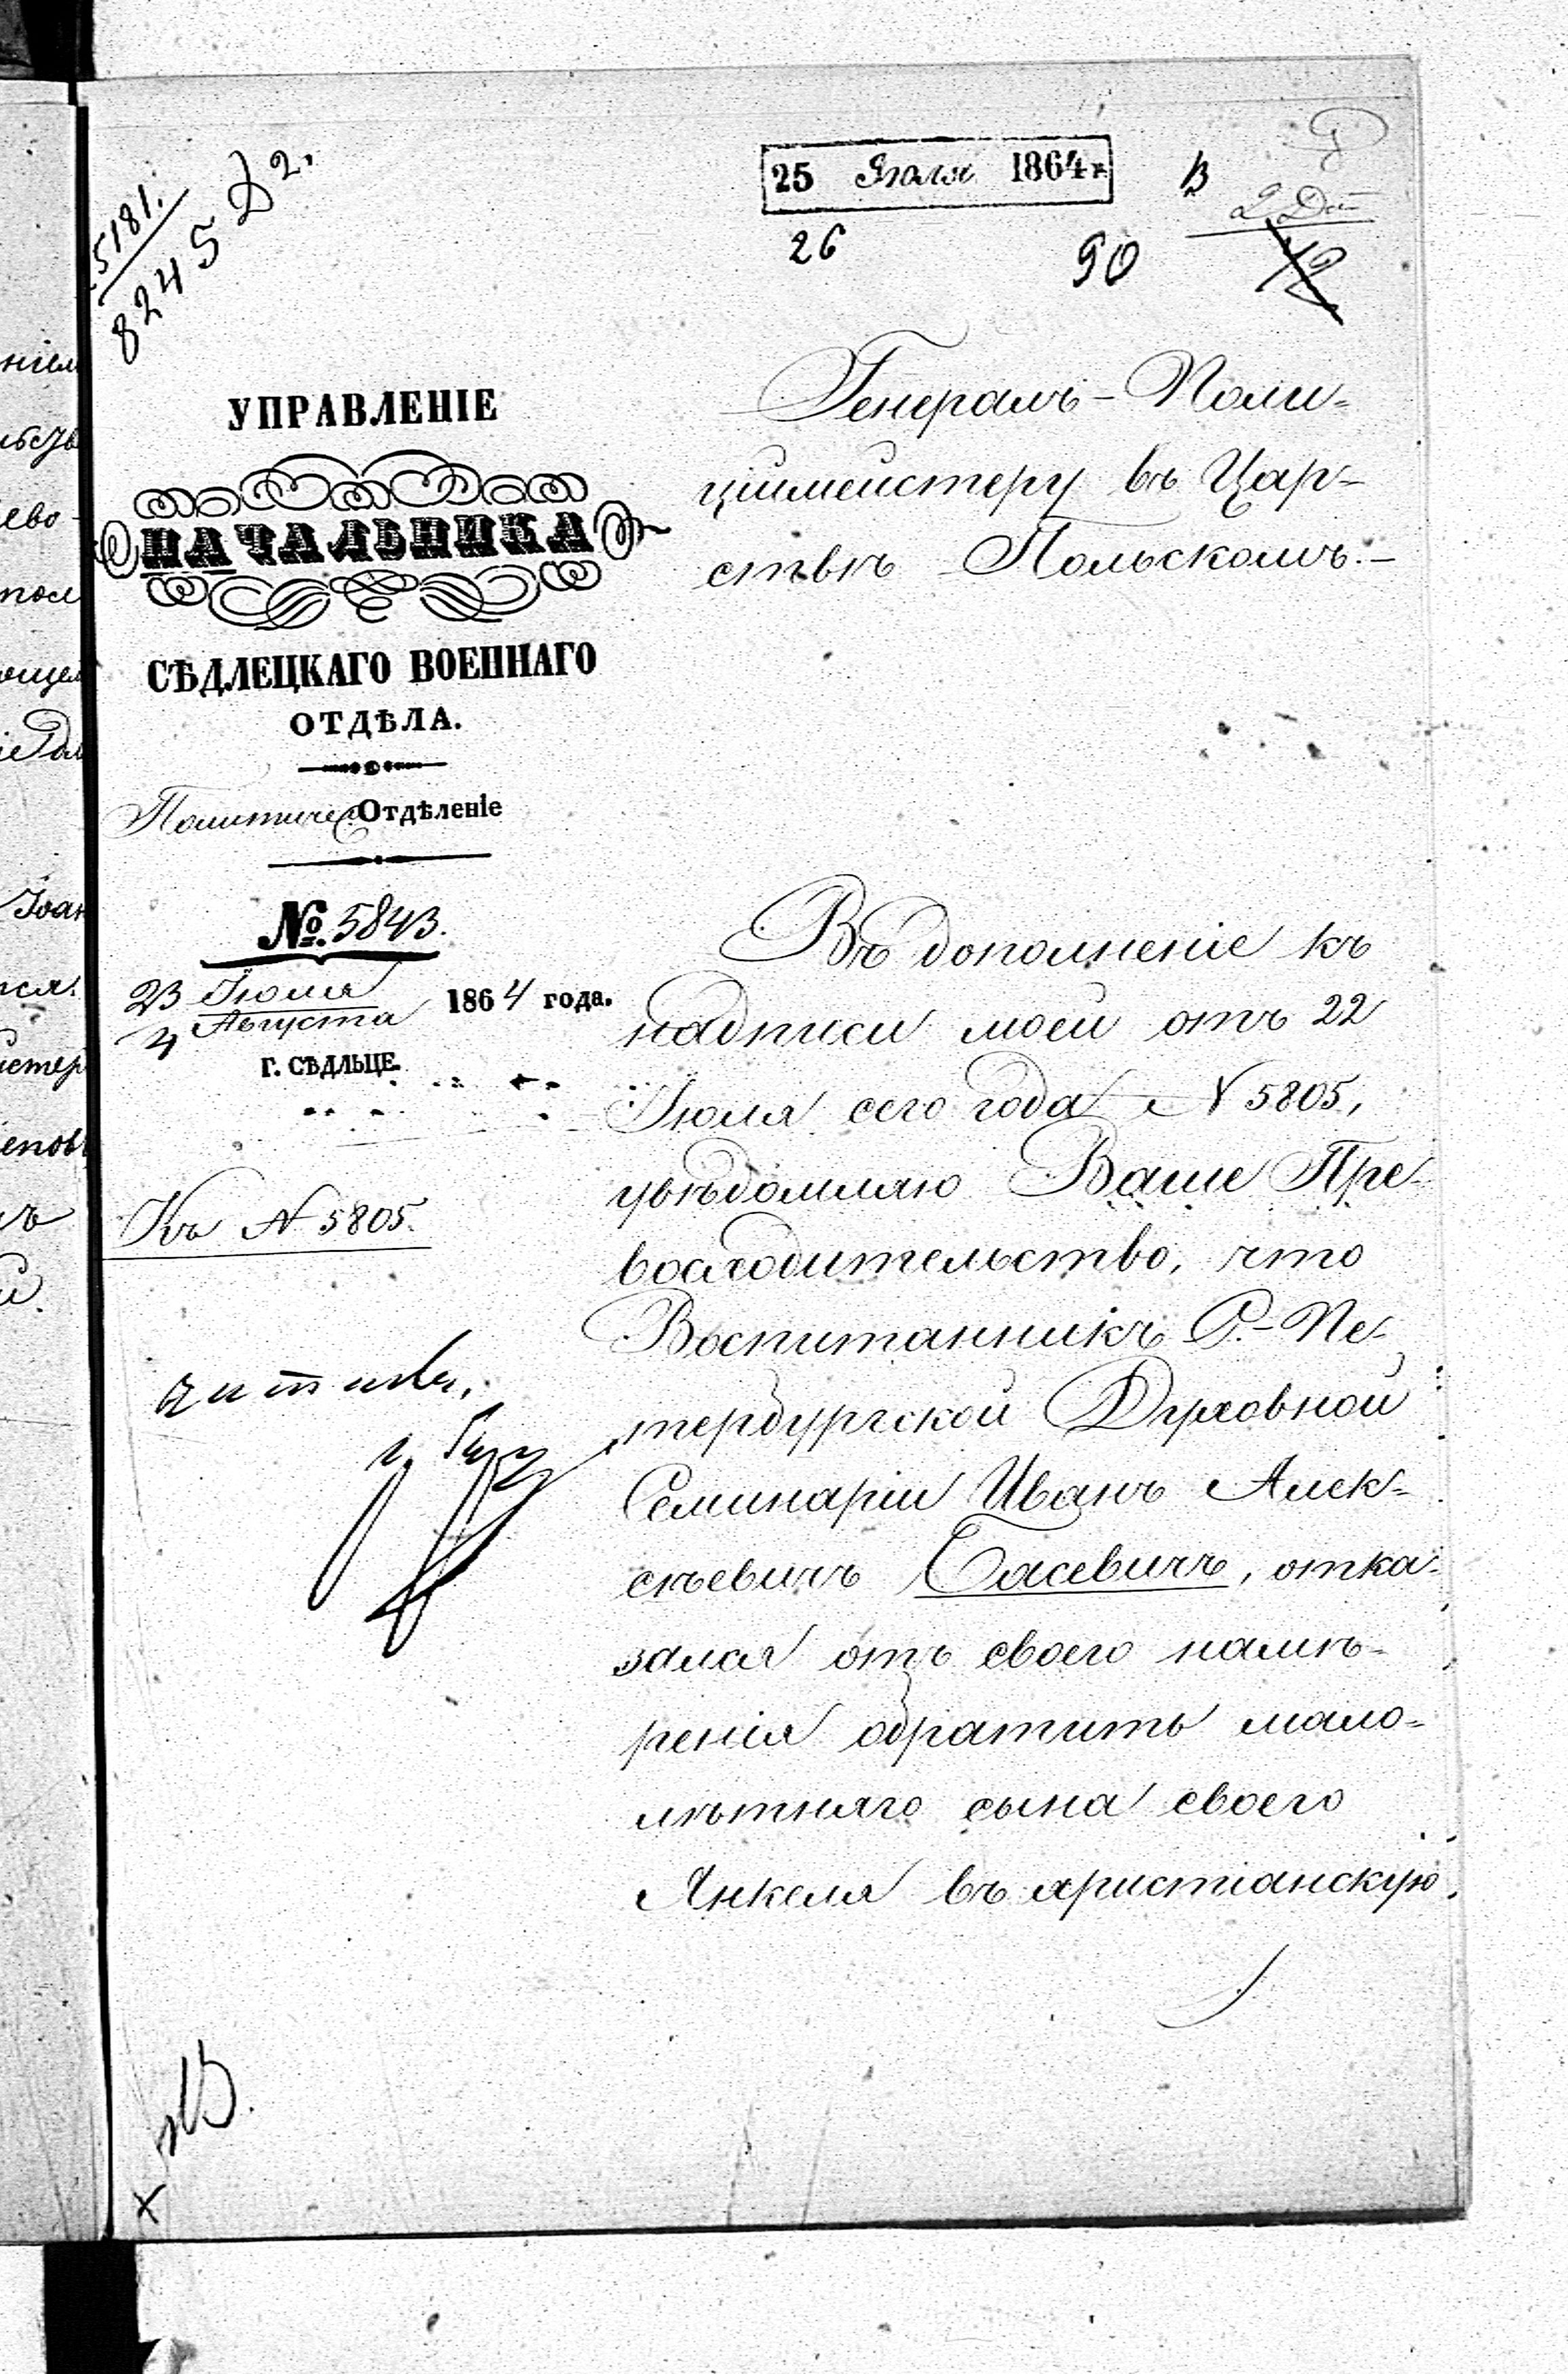 5181.
8245 Д2.
25 Июля 1864 г.
В
2
26
90
12
УПРАВЛЕНІЕ
НАЧАЛЬНИКА
СѢДЛЕЦКАГО ВОЕННАГО
ОТДѢЛА.
Политичес. Отдѣленіе
№ 5843.
23 Іюля
4 Августа
1864 года.
Г. СѢДЛЬЦЕ.
Къ N 5805.
Генералъ-Поли=
цiймейстеру въ Цар-
ствѣ Польскомъ.-
Въ дополненіе къ
надписи моей отъ 22
Іюля сего года N 5805,
увѣдомляю Ваше Пре-
восходительство, что
Воспитанникъ С.-Пе-
тербургской Духовной
Семинаріи Иванъ Алек-
сѣевичъ Басевичъ, отка-
зался отъ своего намѣ-
ренія обратить мало-
лѣтняго сына своего
Янкеля въ христіанскую
х